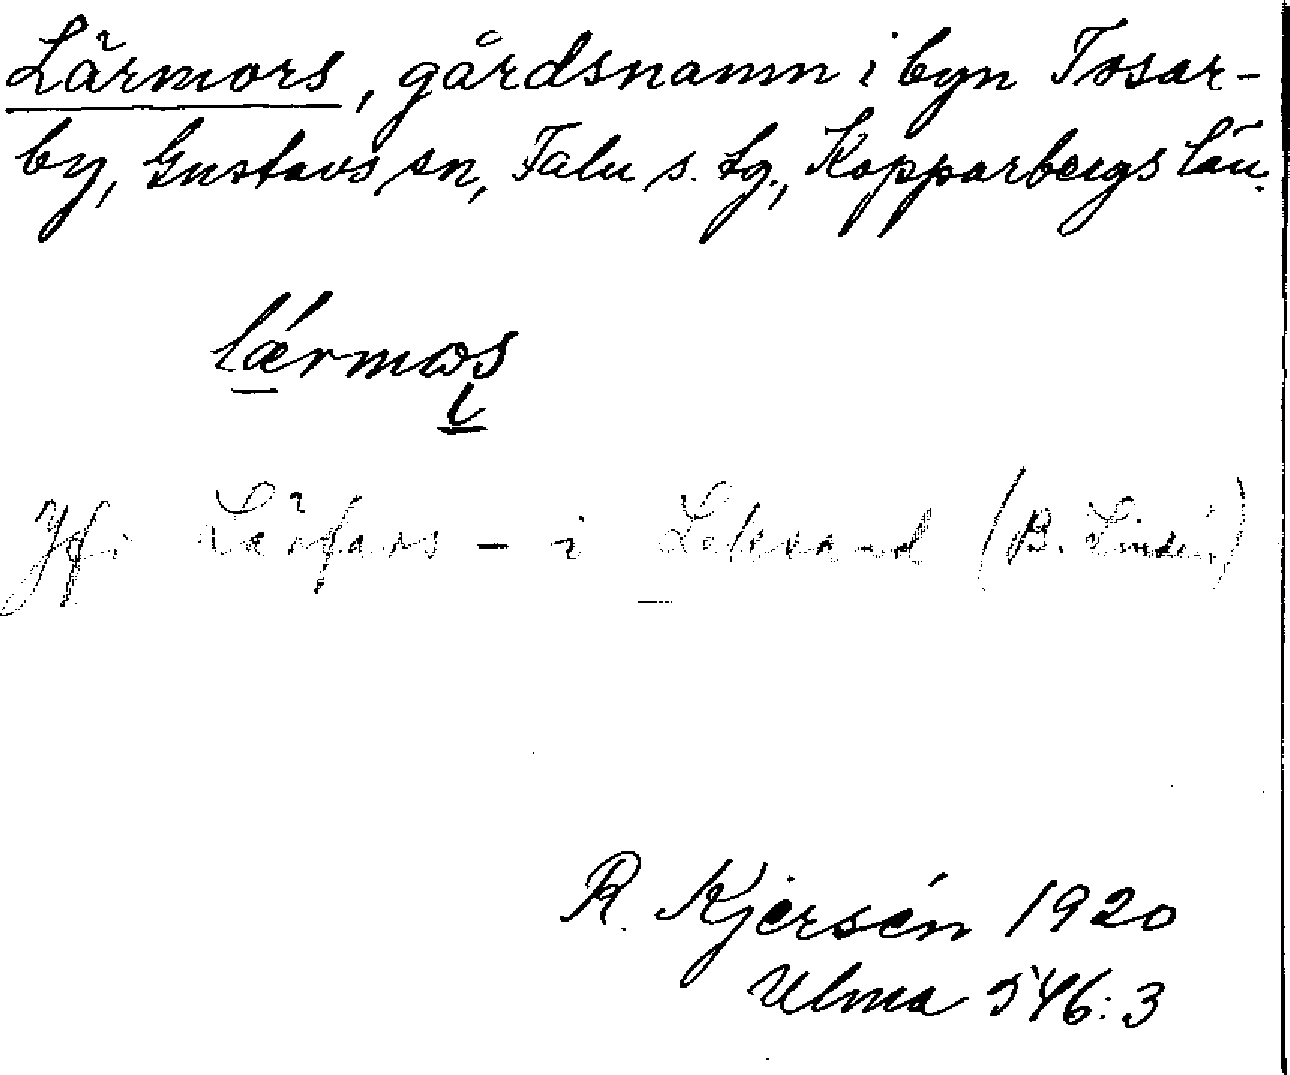 Lärmors, gårdsnamn i byn Tosar-
by, Gustavs sn, Falu s. tg., Kopparbergs län.
lǽrmωs
Jfr Lärfars - i Leksand (B. Lindén)
R. Kjersén 1920
Ulma 546:3